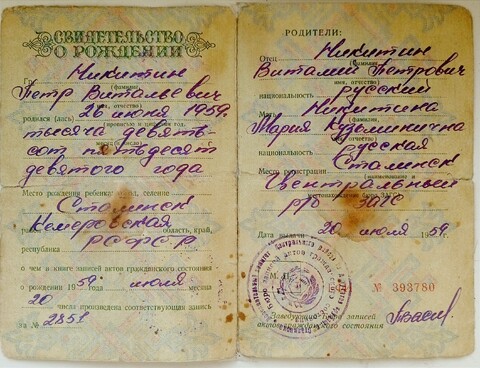 СВИДЕТЕЛЬСТВО
О РОЖДЕНИИ
Гр. Никитин
(фамилия)
Петр Витальевич
имя, отчество)
родился (лась) 26 июня 1959г.
(прописью и цифрами год,
тысяча девять-
сот пятьдесят
девятого года
Место рождения ребенка: город, селение
Сталинск
Кемеровская
область, край,
республика РСФСР
о чем в книге записей актов гражданского состояния
о рождении 1959 июля месяца
20 числа произведена соответствующая запись
за № 2851
РОДИТЕЛИ:
Отец Никитин
(фамилия,
Виталий Петрович
имя, отчество)
национальность русский
Мать Никитина
(фамилия,
Мария Кузьминична
имя, отчество)
национальность русская
Место регистрации Сталинск
(наименование и
Центральный
местонахождение бюро ЗАГС
р/б ЗАГС
Дата выдачи 20 июля 1959г.
М. П.
№ 393780
Заведующий бюро записей
актов гражданского состояния